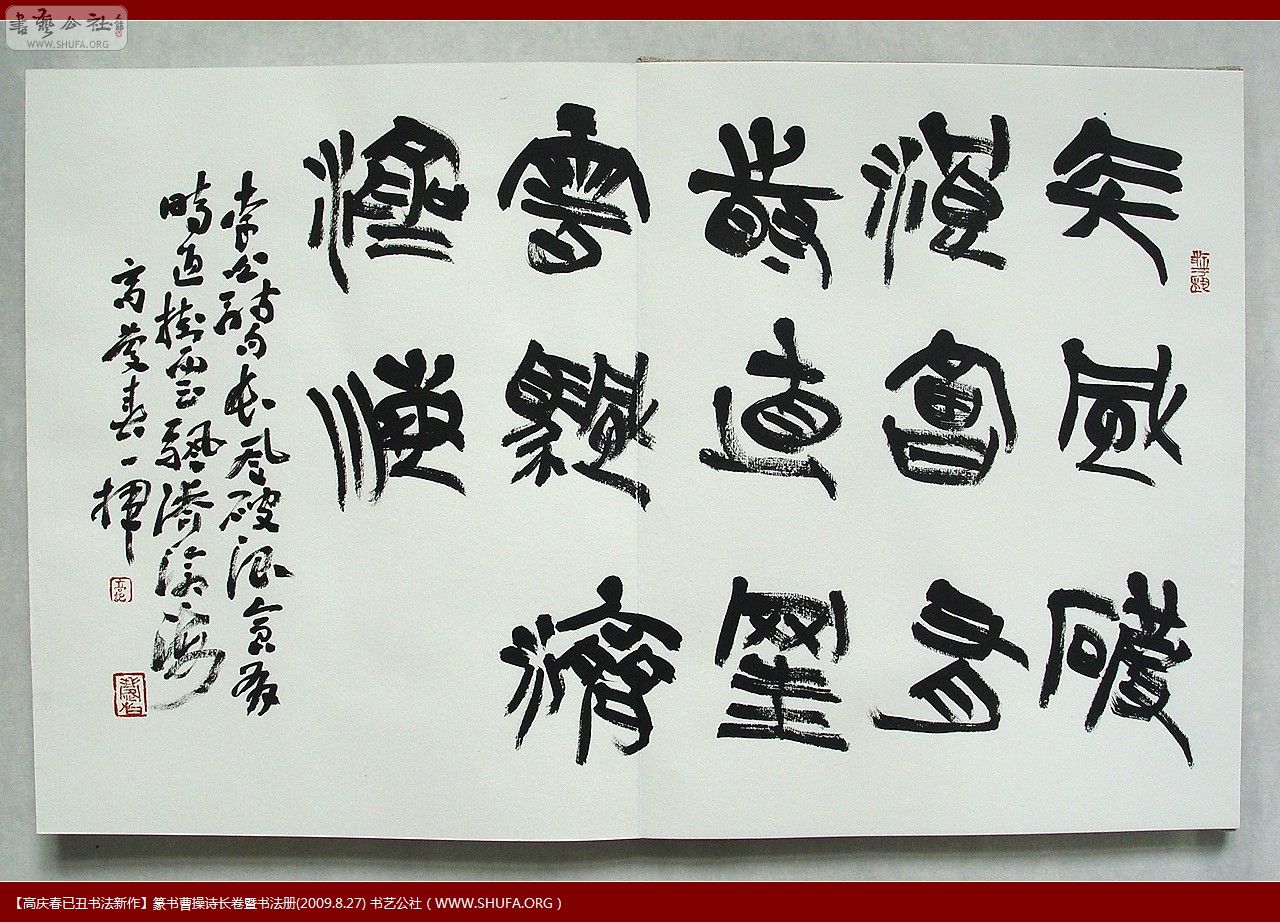 書藝公社
WWW.SHUFA.ORG
長風破
浪會有
時直挂
雲颿濟
滄海
李公詩句長風破浪會有
時直挂雲颿濟滄海
高慶春一揮
【高庆春已丑书法新作】篆书曹操诗长卷暨书法册(2009.8.27) 书艺公社 ( WWW.SHUFA.ORG )